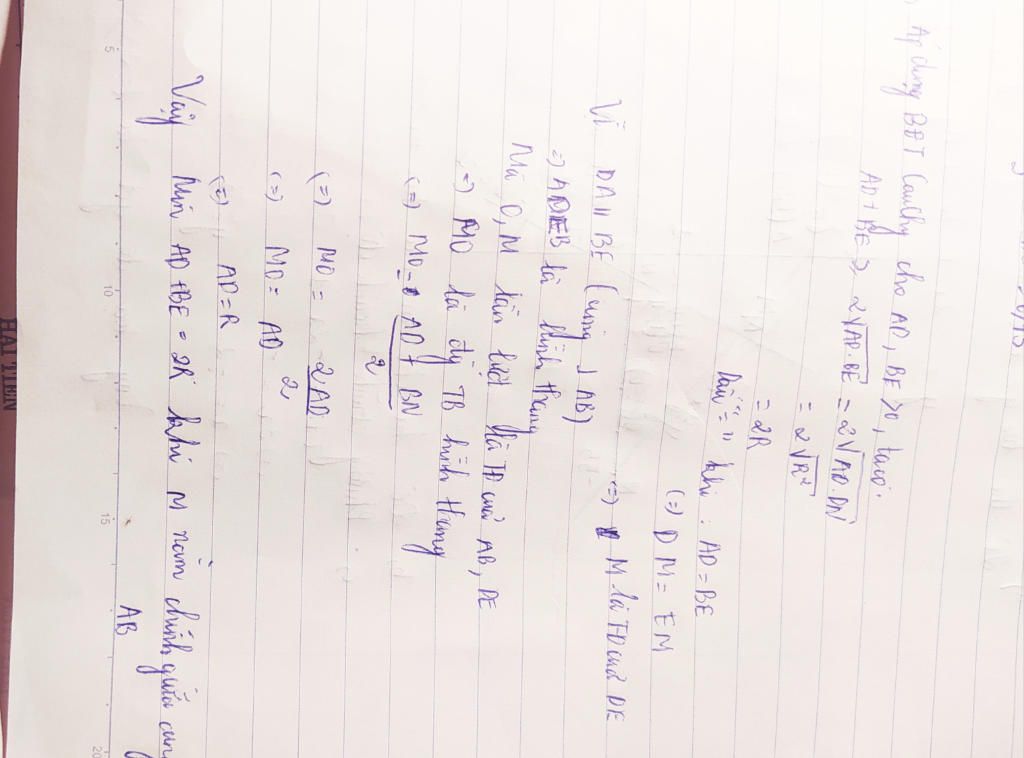 Áp dụng BĐT Cauchy cho AD, BE > 0, được:
AD + BE ≥ 2√AD.BE = 2√AD.DN
= 2√R²
= 2R
Dấu "=" khi : AD = BE
(=) DM = EM
(=) M là TĐ của DE
Vì DA // BE (cùng ⊥ AB)
=) ADEB là hình thang
Mà O, M lần lượt là TĐ của AB, DE
=) MO là đg TB hình thang
(=) MO = AD + BN / 2
(=) MO = 2AD / 2
(=) MO = AD
(=) AD = R
Vậy Min AD + BE = 2R khi M nằm chính giữa cung
AB
HẢI TIẾN
5
10
15
20